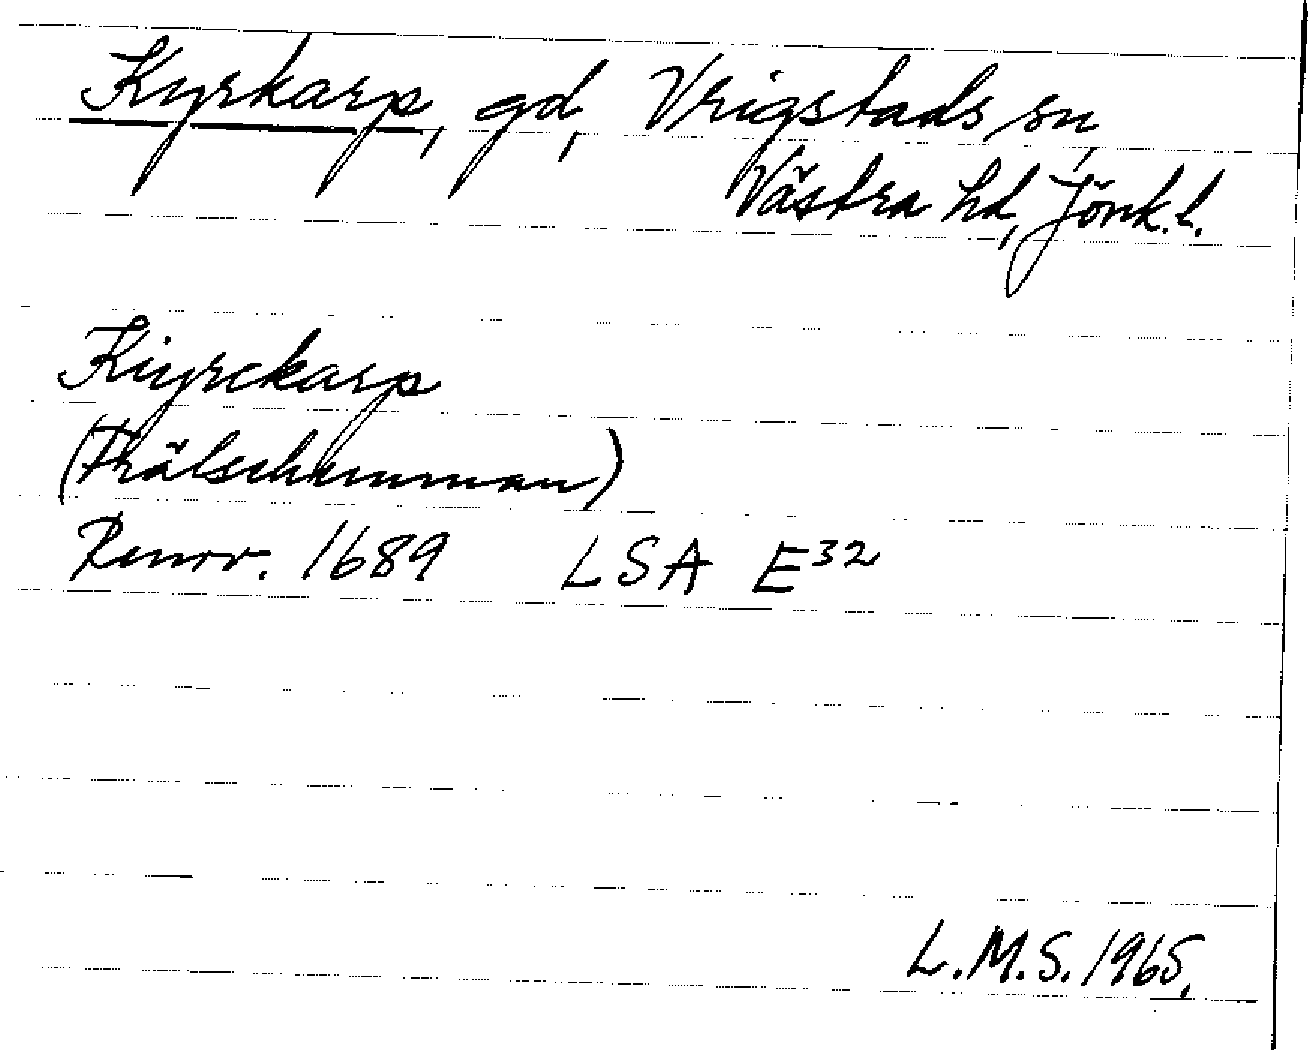 Kyrkarp, gd, Vrigstads sn,
Västra hd, Jönk. l.
Kiyrckarp
(Frälsehemman)
Renov. 1689 LSA E32
L.M.S. 1965.